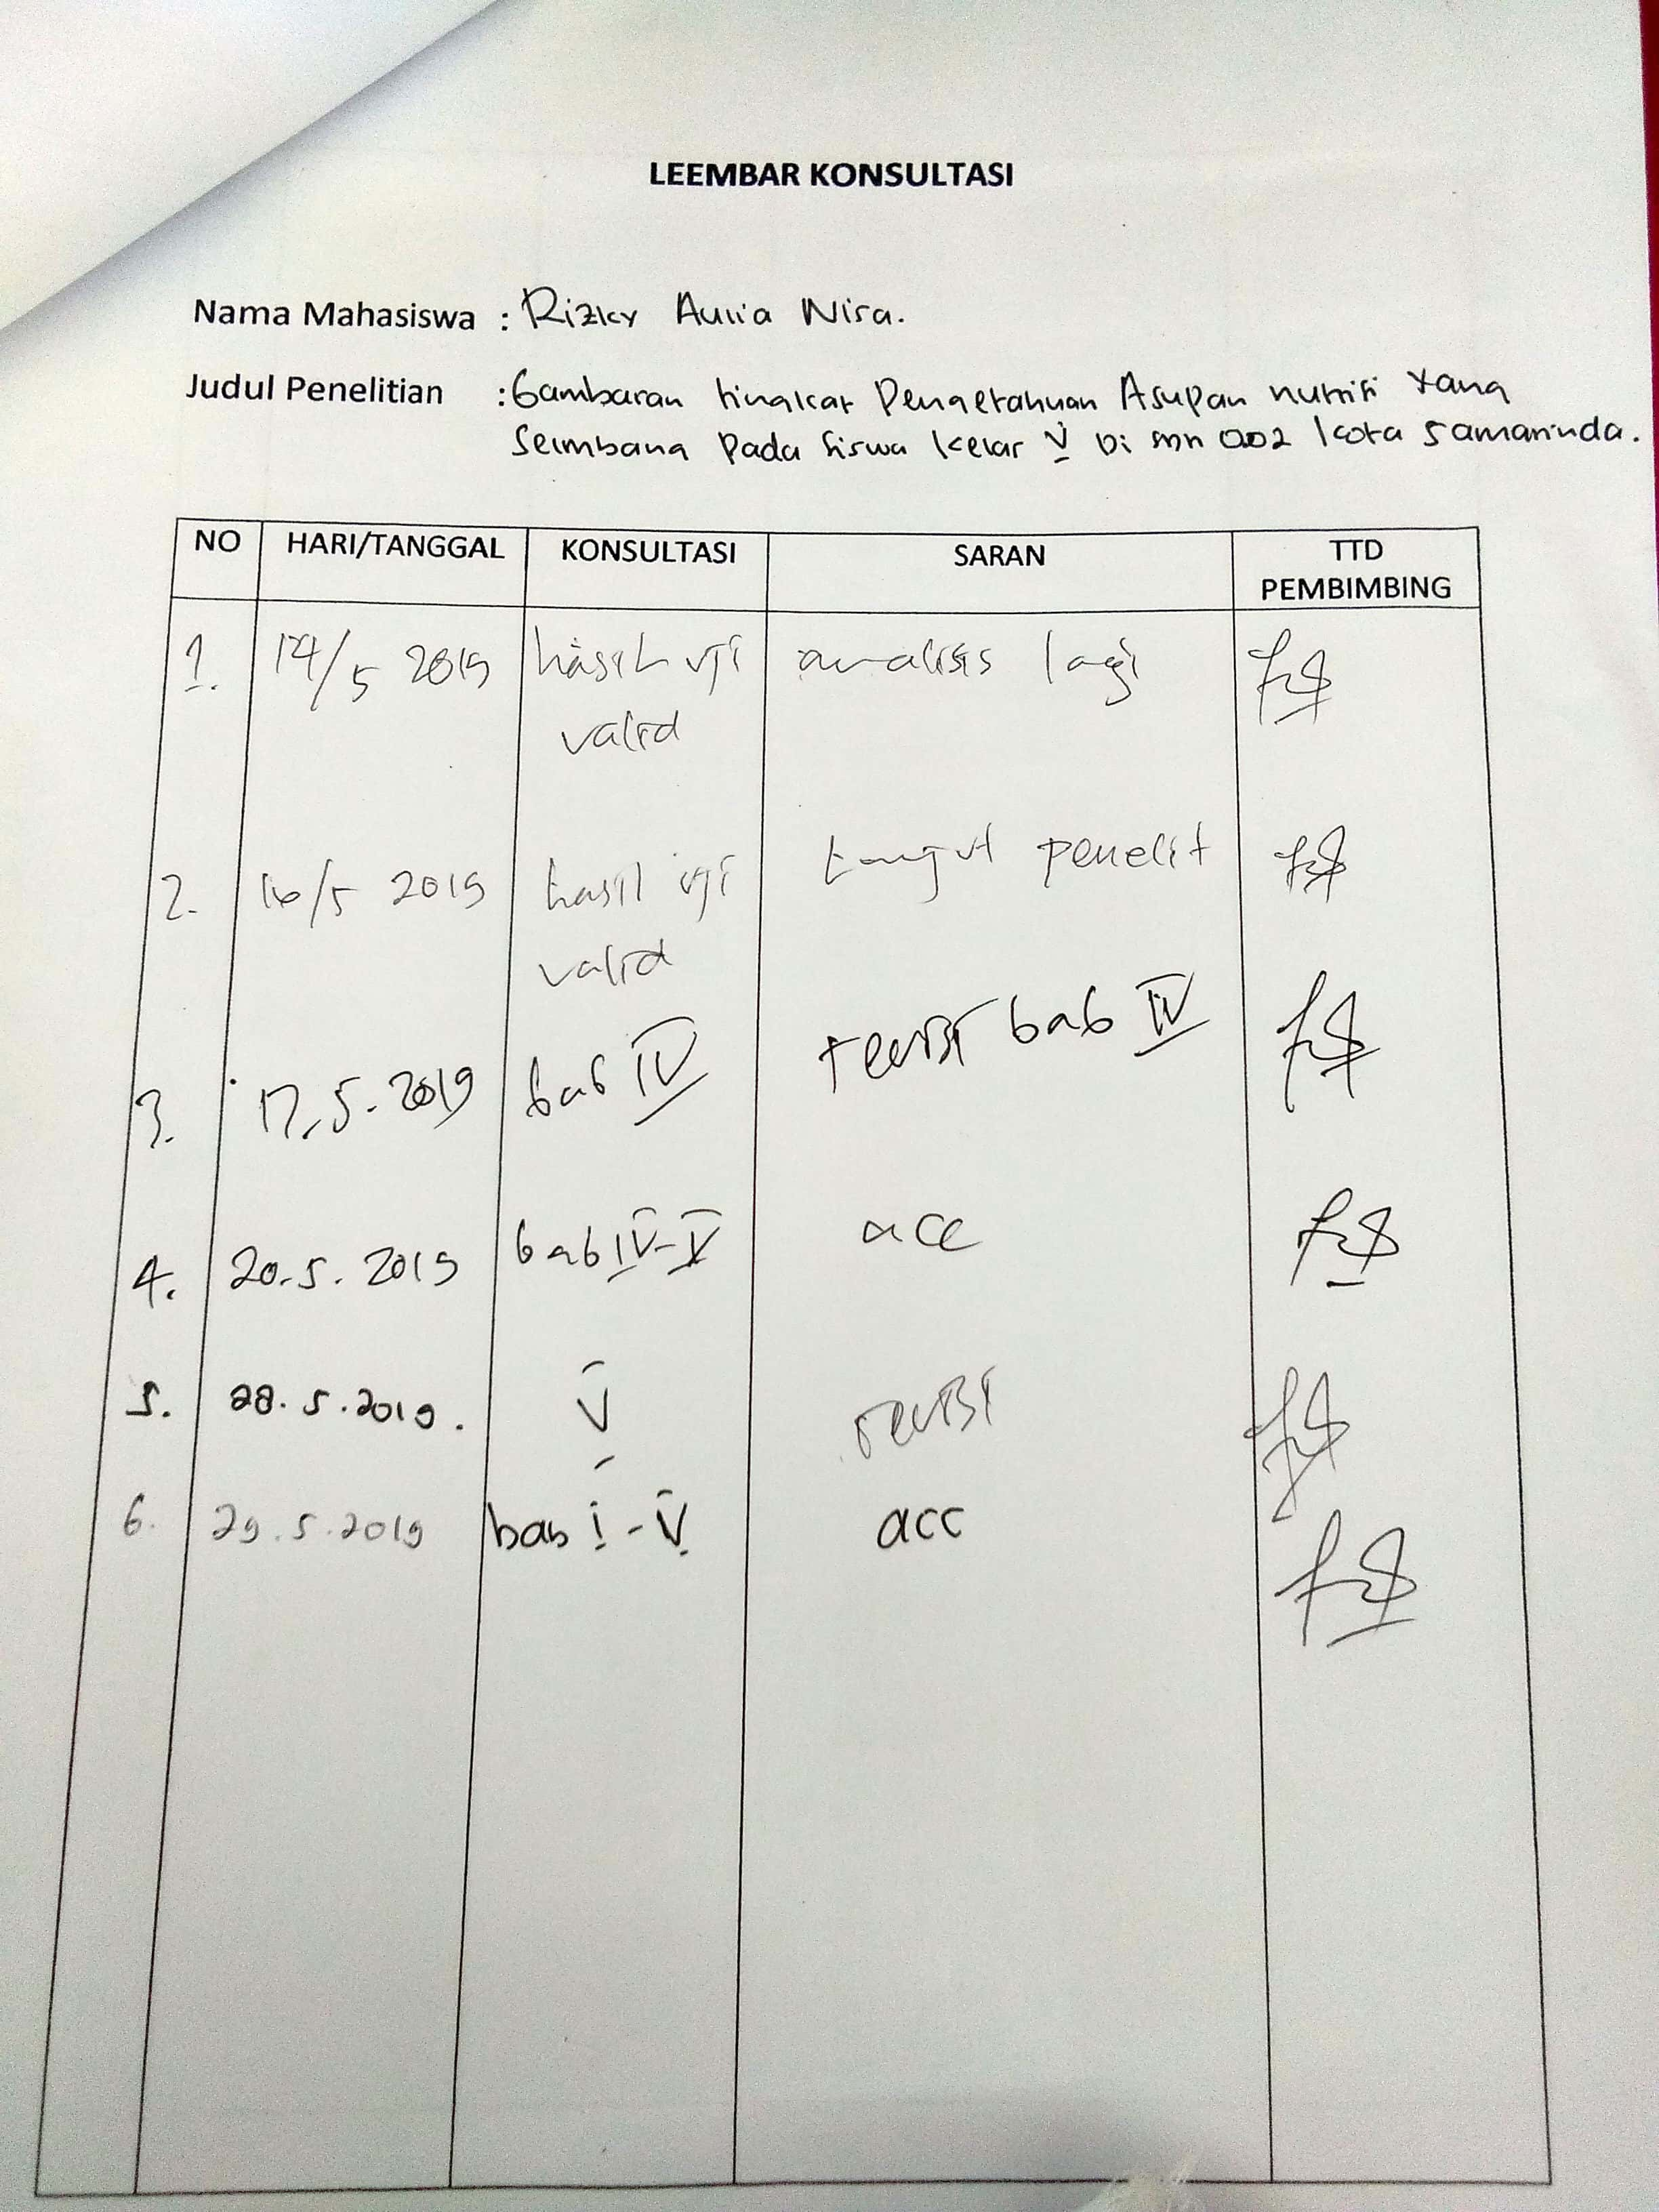 LEEMBAR KONSULTASI
Nama Mahasiswa : Rizky Aulia Nisa.
Judul Penelitian : Gambaran tingkat Pengetahuan Asupan nutrisi Yang
Seimbang Pada Siswa Kelas V Di SDN 002 Kota Samarinda.
NO HARI/TANGGAL KONSULTASI SARAN TTD PEMBIMBING
1. 14/5 2019 hasil uji valid analisis lagi
2. 16/5 2019 hasil uji valid penelit
3. 17.5.2019 bab IV revisi bab IV
4. 20.5.2019 bab IV-V acc
5. 28.5.2019. V revisi
6. 29.5.2019 bab I-V acc